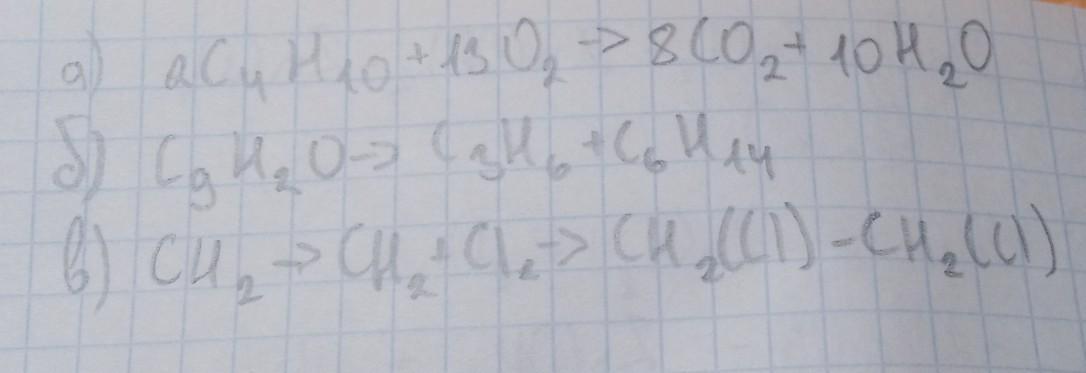 а) 2C₄H₁₀ + 13O₂ → 8CO₂ + 10H₂O
б) C₉H₂O → C₃H₆ + C₆H₁₄
в) CH₂ → CH₂ + Cl₂ → CH₂(Cl) - CH₂(Cl)